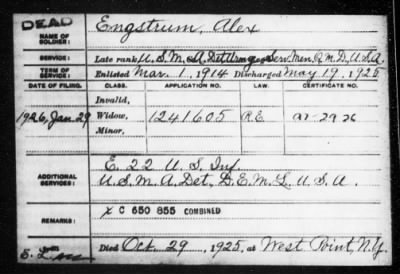 DEAD
NAME OF SOLDIER:
Engstrum, Alex
SERVICE:
Late rank U.S.M.A. Det. Serv. Men, Q.M.D., U.S.A.
TERM OF SERVICE:
Enlisted Mar. 1, 1914 Discharged May 19, 1925
DATE OF FILING. CLASS. APPLICATION NO. LAW. CERTIFICATE NO.
Invalid,
1926, Jan. 29 Widow, 1241605 R E
Minor,
ADDITIONAL SERVICES:
E. 22 U.S. Inf
U.S.M.A. Det, D.E.M.L. U.S.A.
REMARKS:
X C 650 855 COMBINED
Died Oct. 29, 1925, at West Point, N.Y.